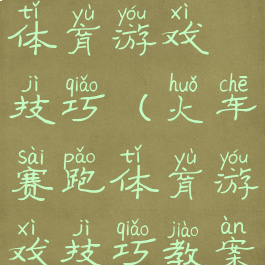 tǐ yù yóu xì
体育游戏
jì qiǎo huǒ chē
技巧(火车
sài pǎo tǐ yù yóu
赛跑体育游
xì jì qiǎo jiào àn
戏技巧教案